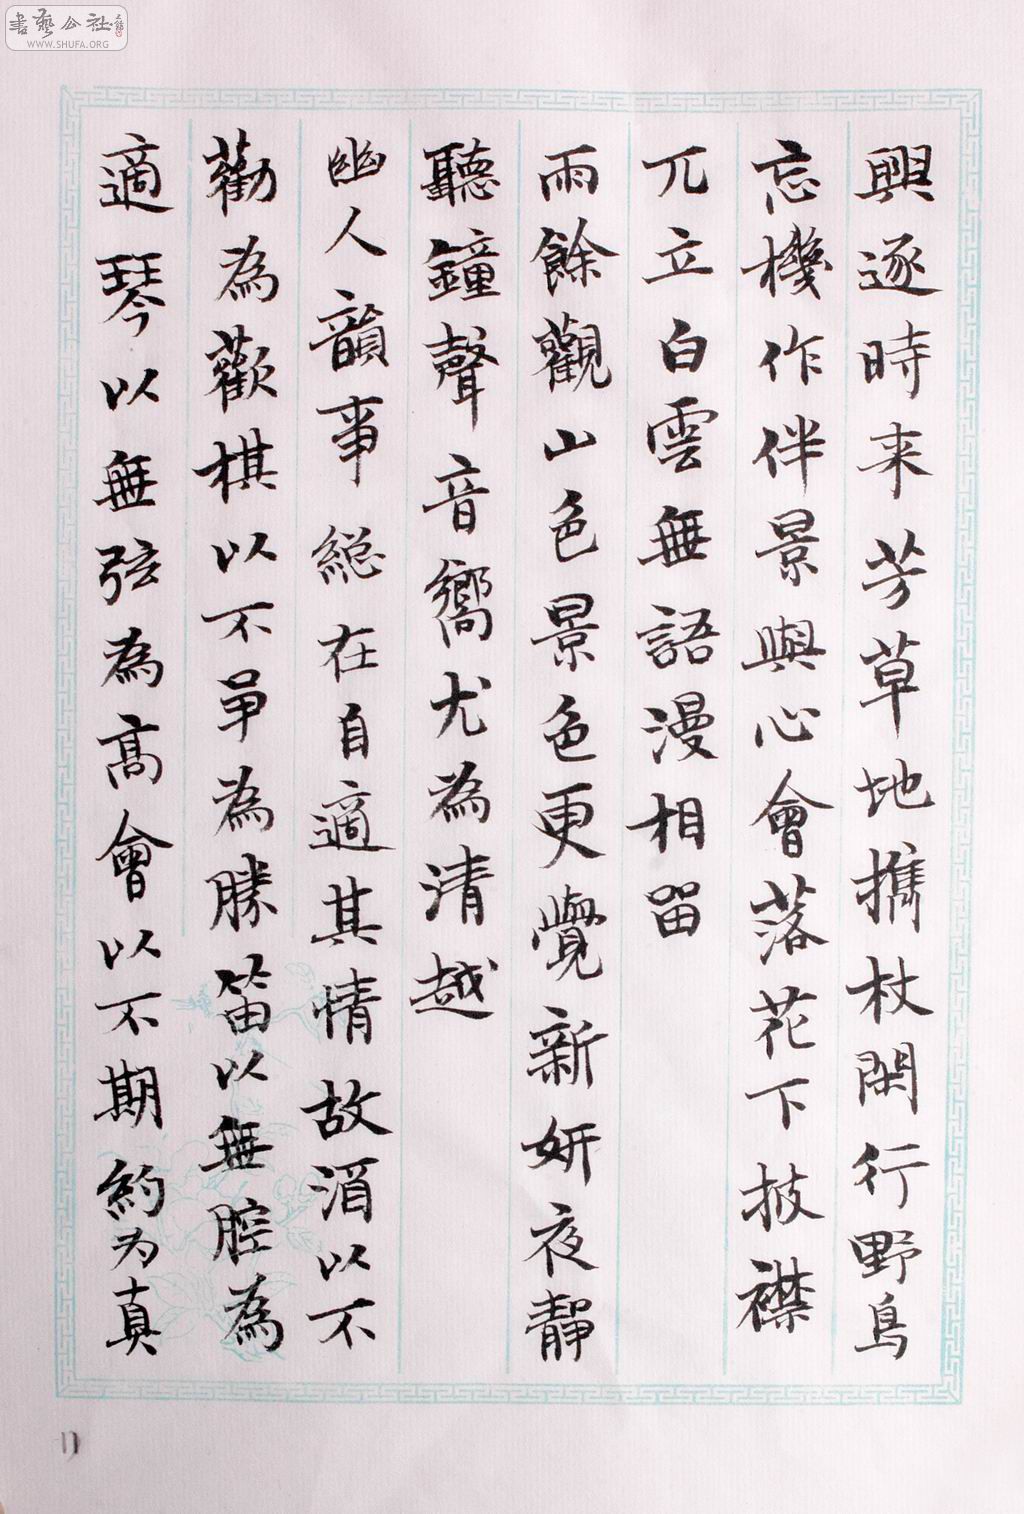 書藝公社
WWW.SHUFA.ORG
興逐時来芳草地攜杖閑行野鳥
忘機作伴景與心會落花下披襟
兀立白雲無語漫相留
雨餘觀山色景色更覺新妍夜靜
聽鐘聲音嚮尤為清越
幽人韻事総在自適其情故酒以不
勸為歡棋以不爭為勝笛以無腔為
適琴以無弦為高會以不期約为真